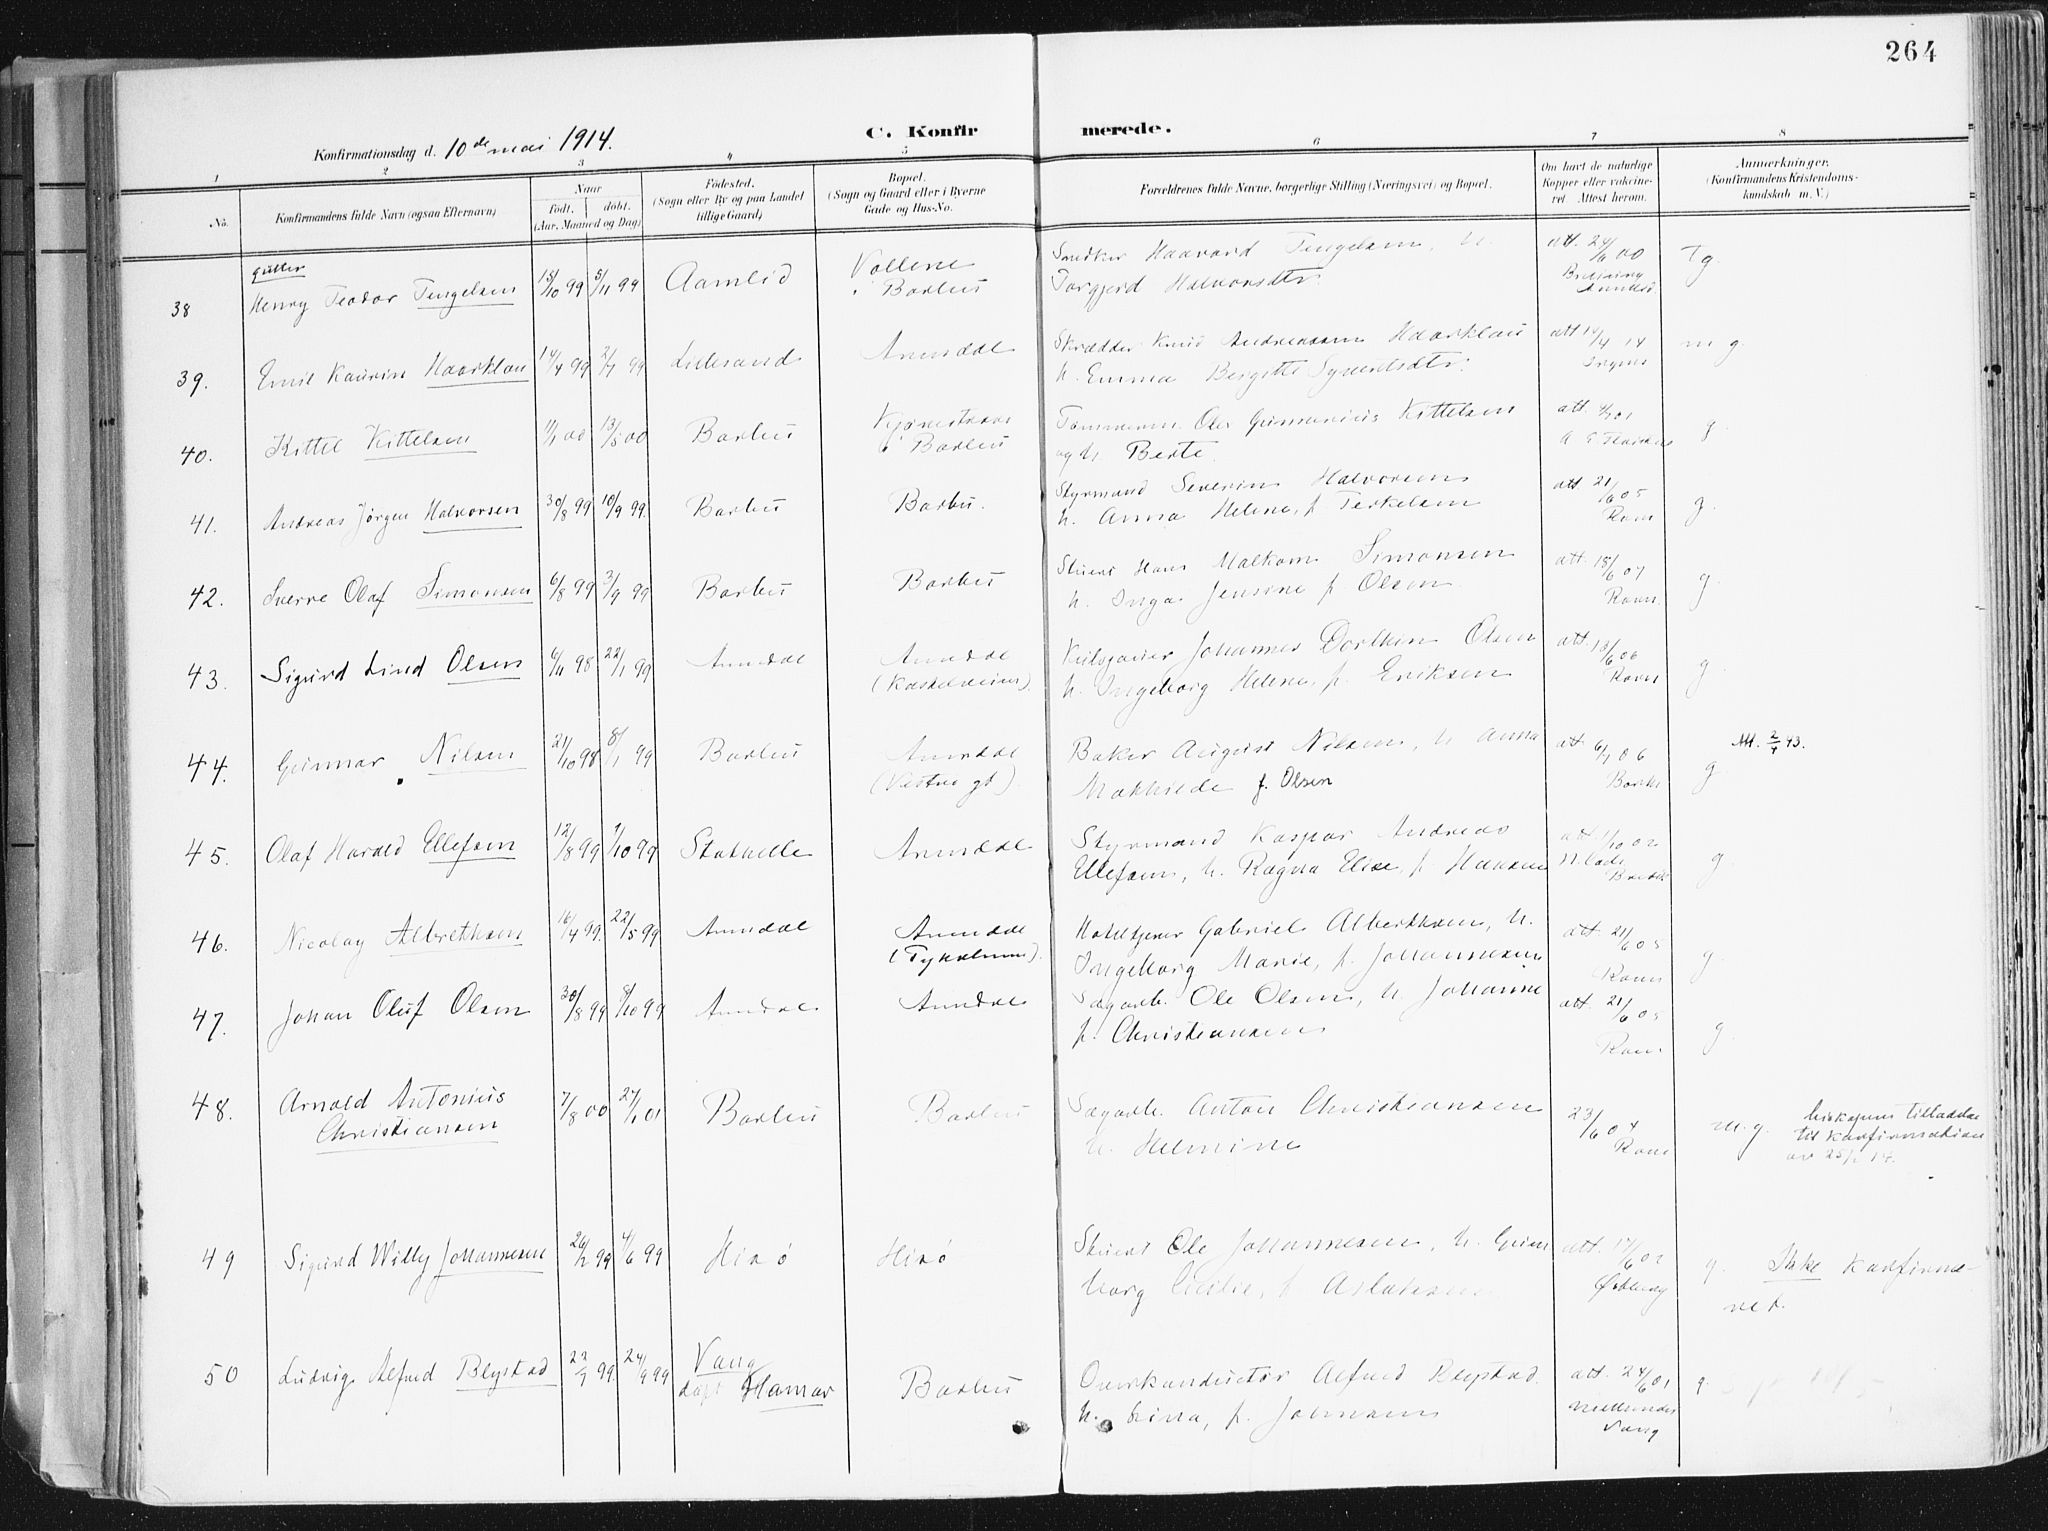 264
C. Konfirmerede.
Konfirmationsdag d. 10de mai 1914.
1 2 3 4 5 6 7 8
No.
Konfirmandens fulde Navn (ogsaa Efternavn)
Naar
Født. døbt.
(Aar, Maaned og Dag)
Fødested.
(Sogn eller By og paa Landet
tillige Gaard)
Bopæl.
(Sogn og Gaard eller i Byerne
Gade og Hus-No.
Forældrenes fulde Navne, borgerlige Stilling (Næringsvei) og Bopæl.
Om havt de naturlige
Kopper eller vakcine-
ret. Attest herom.
Anmærkninger.
(Konfirmandens Kristendoms-
kundskab m. V.)
gutter
38 Henry Teodor Tengelsen 15/10 99 5/11 99 Aamlid Vollene
i Barbu
Snedker Haavard Tengelsen, h.
Torgjerd Halvorsdtr.
att. 24/6 00
Tg.
39. Emil Kaurin Haarklau 14/4 99 2/7 99 Lillesand Arendal
Skrædder Knud Andreassen Haarklau
h. Emma Birgitte Syvertsdtr.
att 14/4 14
m g.
40. Kittel Kittelsen 11/1 00 13/5 00 Barbu
i Barbu
Tømmerm. Ole Gunvarius Kittelsen
og h. Berte.
att.
g.
41. Andreas Jørgen Halvorsen 30/8 99 10/9 99. Barbu Barbu.
Styrmand Severin Halvorsen
h. Anna Helene, f. Terkelsen
att. 21/6 05
Ravn
g.
42. Sverre Olaf Simonsen 6/8 99 3/9 99 Barbu Barbu
Stuert Hans Malkom Simonsen
h. Inga Jensine f. Olsen
att. 18/6 07
Ravn.
g.
43. Sigurd Lind Olsen 6/11 98 22/1 99 Arendal Arendal
(Kastelveien)
Johannes Dorthin Olsen
h. Ingeborg Helene, f. Eriksen
att. 13/6 06
Ravn
g.
44. Gunnar Nilsen 21/10 98 8/1 99 Barbu Arendal
(Vestre gt).
Baker August Nilsen, h Anna
Mathilde f. Olsen
att 6/7 06
g. Att. 2/4 43.
45. Olaf Harald Ellefsen 12/8 99 1/10 99 Stathelle Arendal
Styrmand Kaspar Andreas
Ellefsen, h. Ragna Elise, f. Hansen
att 1/10 02
g
46. Nicolay Albrethsen 16/4 99. 22/5 99 Arendal Arendal
(Tyholmen).
Hoteltjener Gabriel Alberthsen, h.
Ingeborg Marie, f. Johannesen
att 21/6 05
Ravn
g.
47. Johan Oluf Olsen 30/8 99 8/10 99 Arendal Arendal
Sagarb. Ole Olsen, h. Johanne
f. Christiansen
att. 21/6 05
Ravn
g
48. Arnold Antonius
Christiansen 7/8 00 27/1 01 Barbu Barbu
Sagarb. Anton Christiansen
h. Helmine
23/6 04
Ravn
m.g. biskopens tilladelse
til konfirmation
av 25/2 14.
49 Sigurd Willy Johannesen 26/2 99 4/6 99 Hisø Hisø
Stuert Ole Johannesen, h. Guun
borg Cecilie, f Aslaksen
att. 17/6 02
Ødberg
g. Ikke konfirme-
ret.
50 Ludvig Alfred Blystad 22/7 99. 24/9 99 Vang
døpt Hamar Barbu
Overkonduktør Alfred Blystad
h. Lina, f. Johnsen
att. 24/6 01
Vang
g.